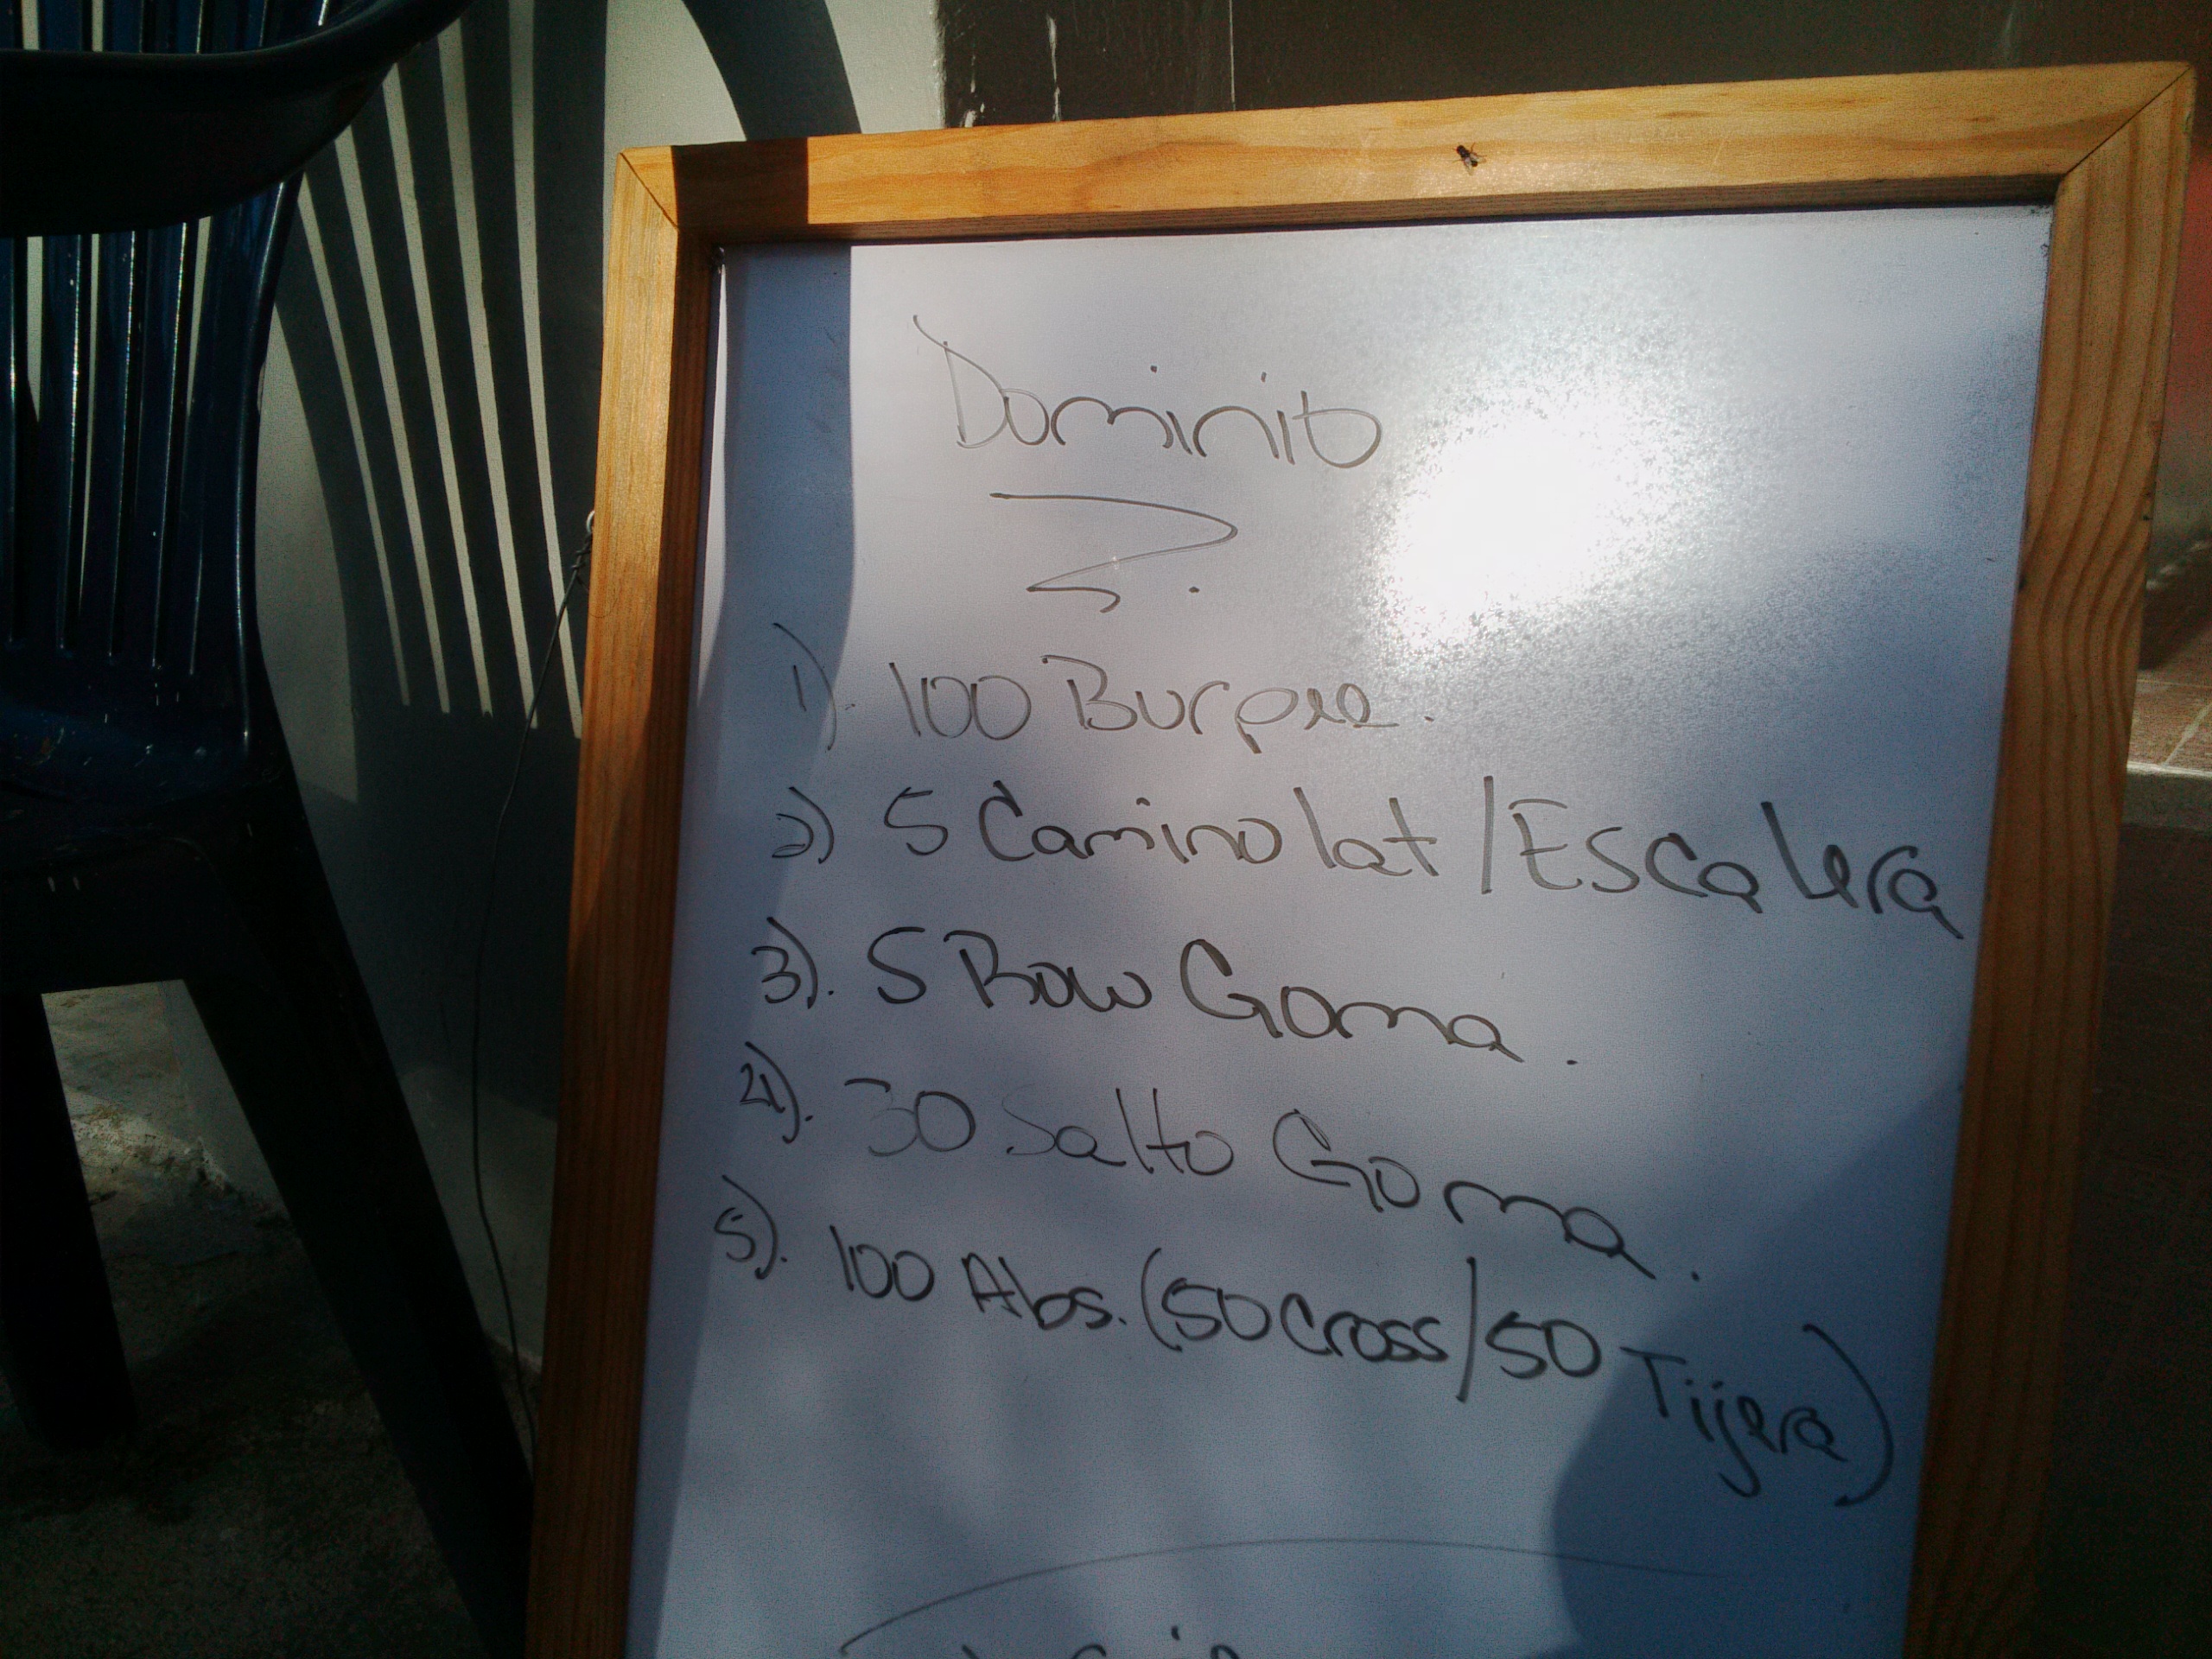 Dominio
1). 100 Burpee.
2) 5 Camino lat / Escalera
3). 5 Row Goma.
4). 30 Salto Goma.
5). 100 Abs. (50 Cross / 50 Tijera)